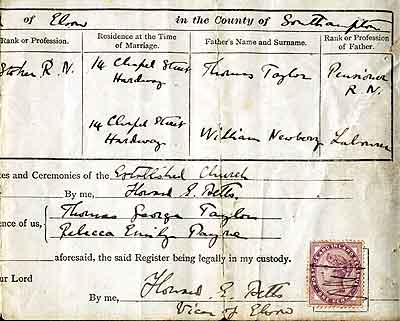 of Elson in the County of Southampton
Rank or Profession. Residence at the Time of Marriage. Father's Name and Surname. Rank or Profession of Father.
Stoker R. N. 14 Chapel Street Hardway Thomas Taylor Pensioner R. N.
14 Chapel Street Hardway William Newbery Labourer
tes and Ceremonies of the Established Church
By me, Howard E. Betts
ence of us, Thomas George Taylor
Rebecca Emily Payne
aforesaid, the said Register being legally in my custody.
ur Lord
By me, Howard E. Betts
Vicar of Elson